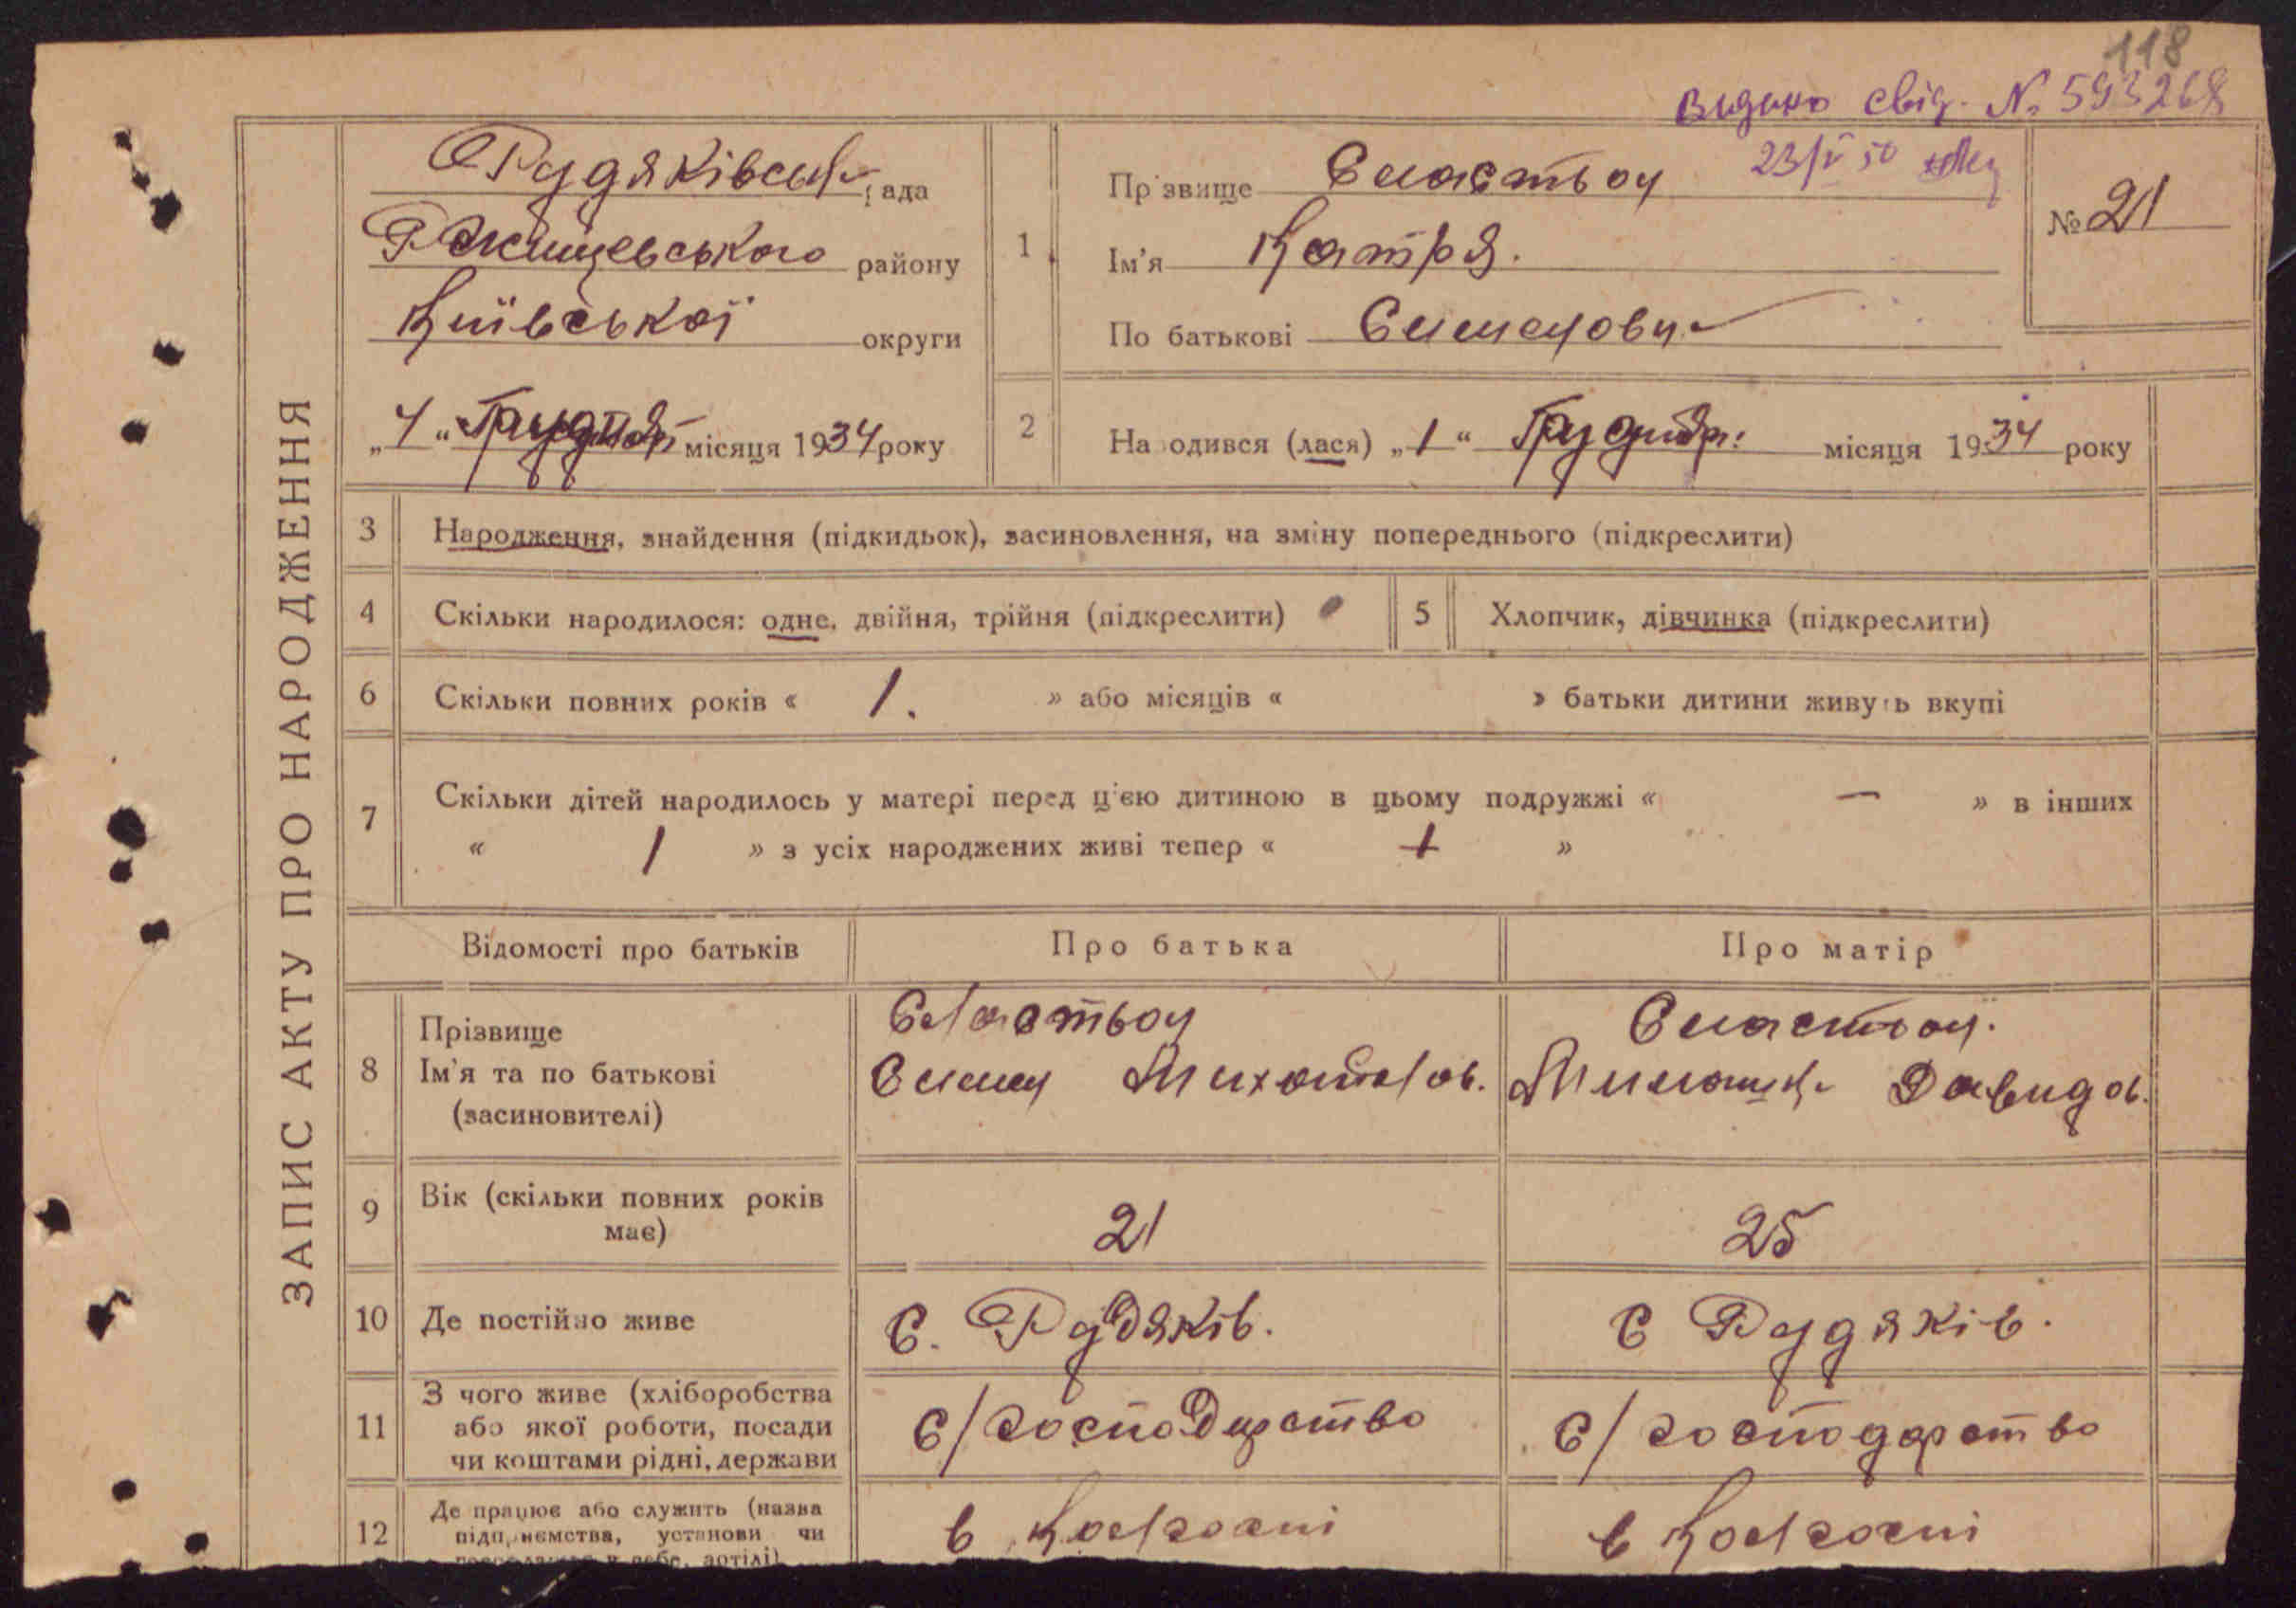 118
Видано свід. № 593268
23/V 50
ЗАПИС АКТУ ПРО НАРОДЖЕННЯ
Рудяківська рада
Ржищевського району
Київської округи
„4“ Грудня місяця 1934 року
1
Прізвище Сластьон
Ім'я Катря.
По батькові Семеновна
№ 21
2
Народився (лася) „1“ Грудня місяця 1934 року
3 Народження, знайдення (підкидьок), засиновлення, на зміну попереднього (підкреслити)
4 Скільки народилося: одне, двійня, трійня (підкреслити)
5 Хлопчик, дівчинка (підкреслити)
6 Скільки повних років « 1. » або місяців « » батьки дитини живуть вкупі
7 Скільки дітей народилось у матері перед ц'єю дитиною в цьому подружжі « — » в інших
« 1 » з усіх народжених живі тепер « 1 »
Відомості про батьків Про батька Про матір
8 Прізвище
Ім'я та по батькові
(засиновителі)
Сластьон
Семен Михайлов.
Сластьон.
Давидов.
9 Вік (скільки повних років
має)
21
25
10 Де постійно живе
с. Рудяків.
с Рудяків.
11 З чого живе (хліборобства
або якої роботи, посади
чи коштами рідні, держави
с/господарство
с/господарство
12 Де працює або служить (назва
підприємства, установи чи
в колгоспі
в колгоспі